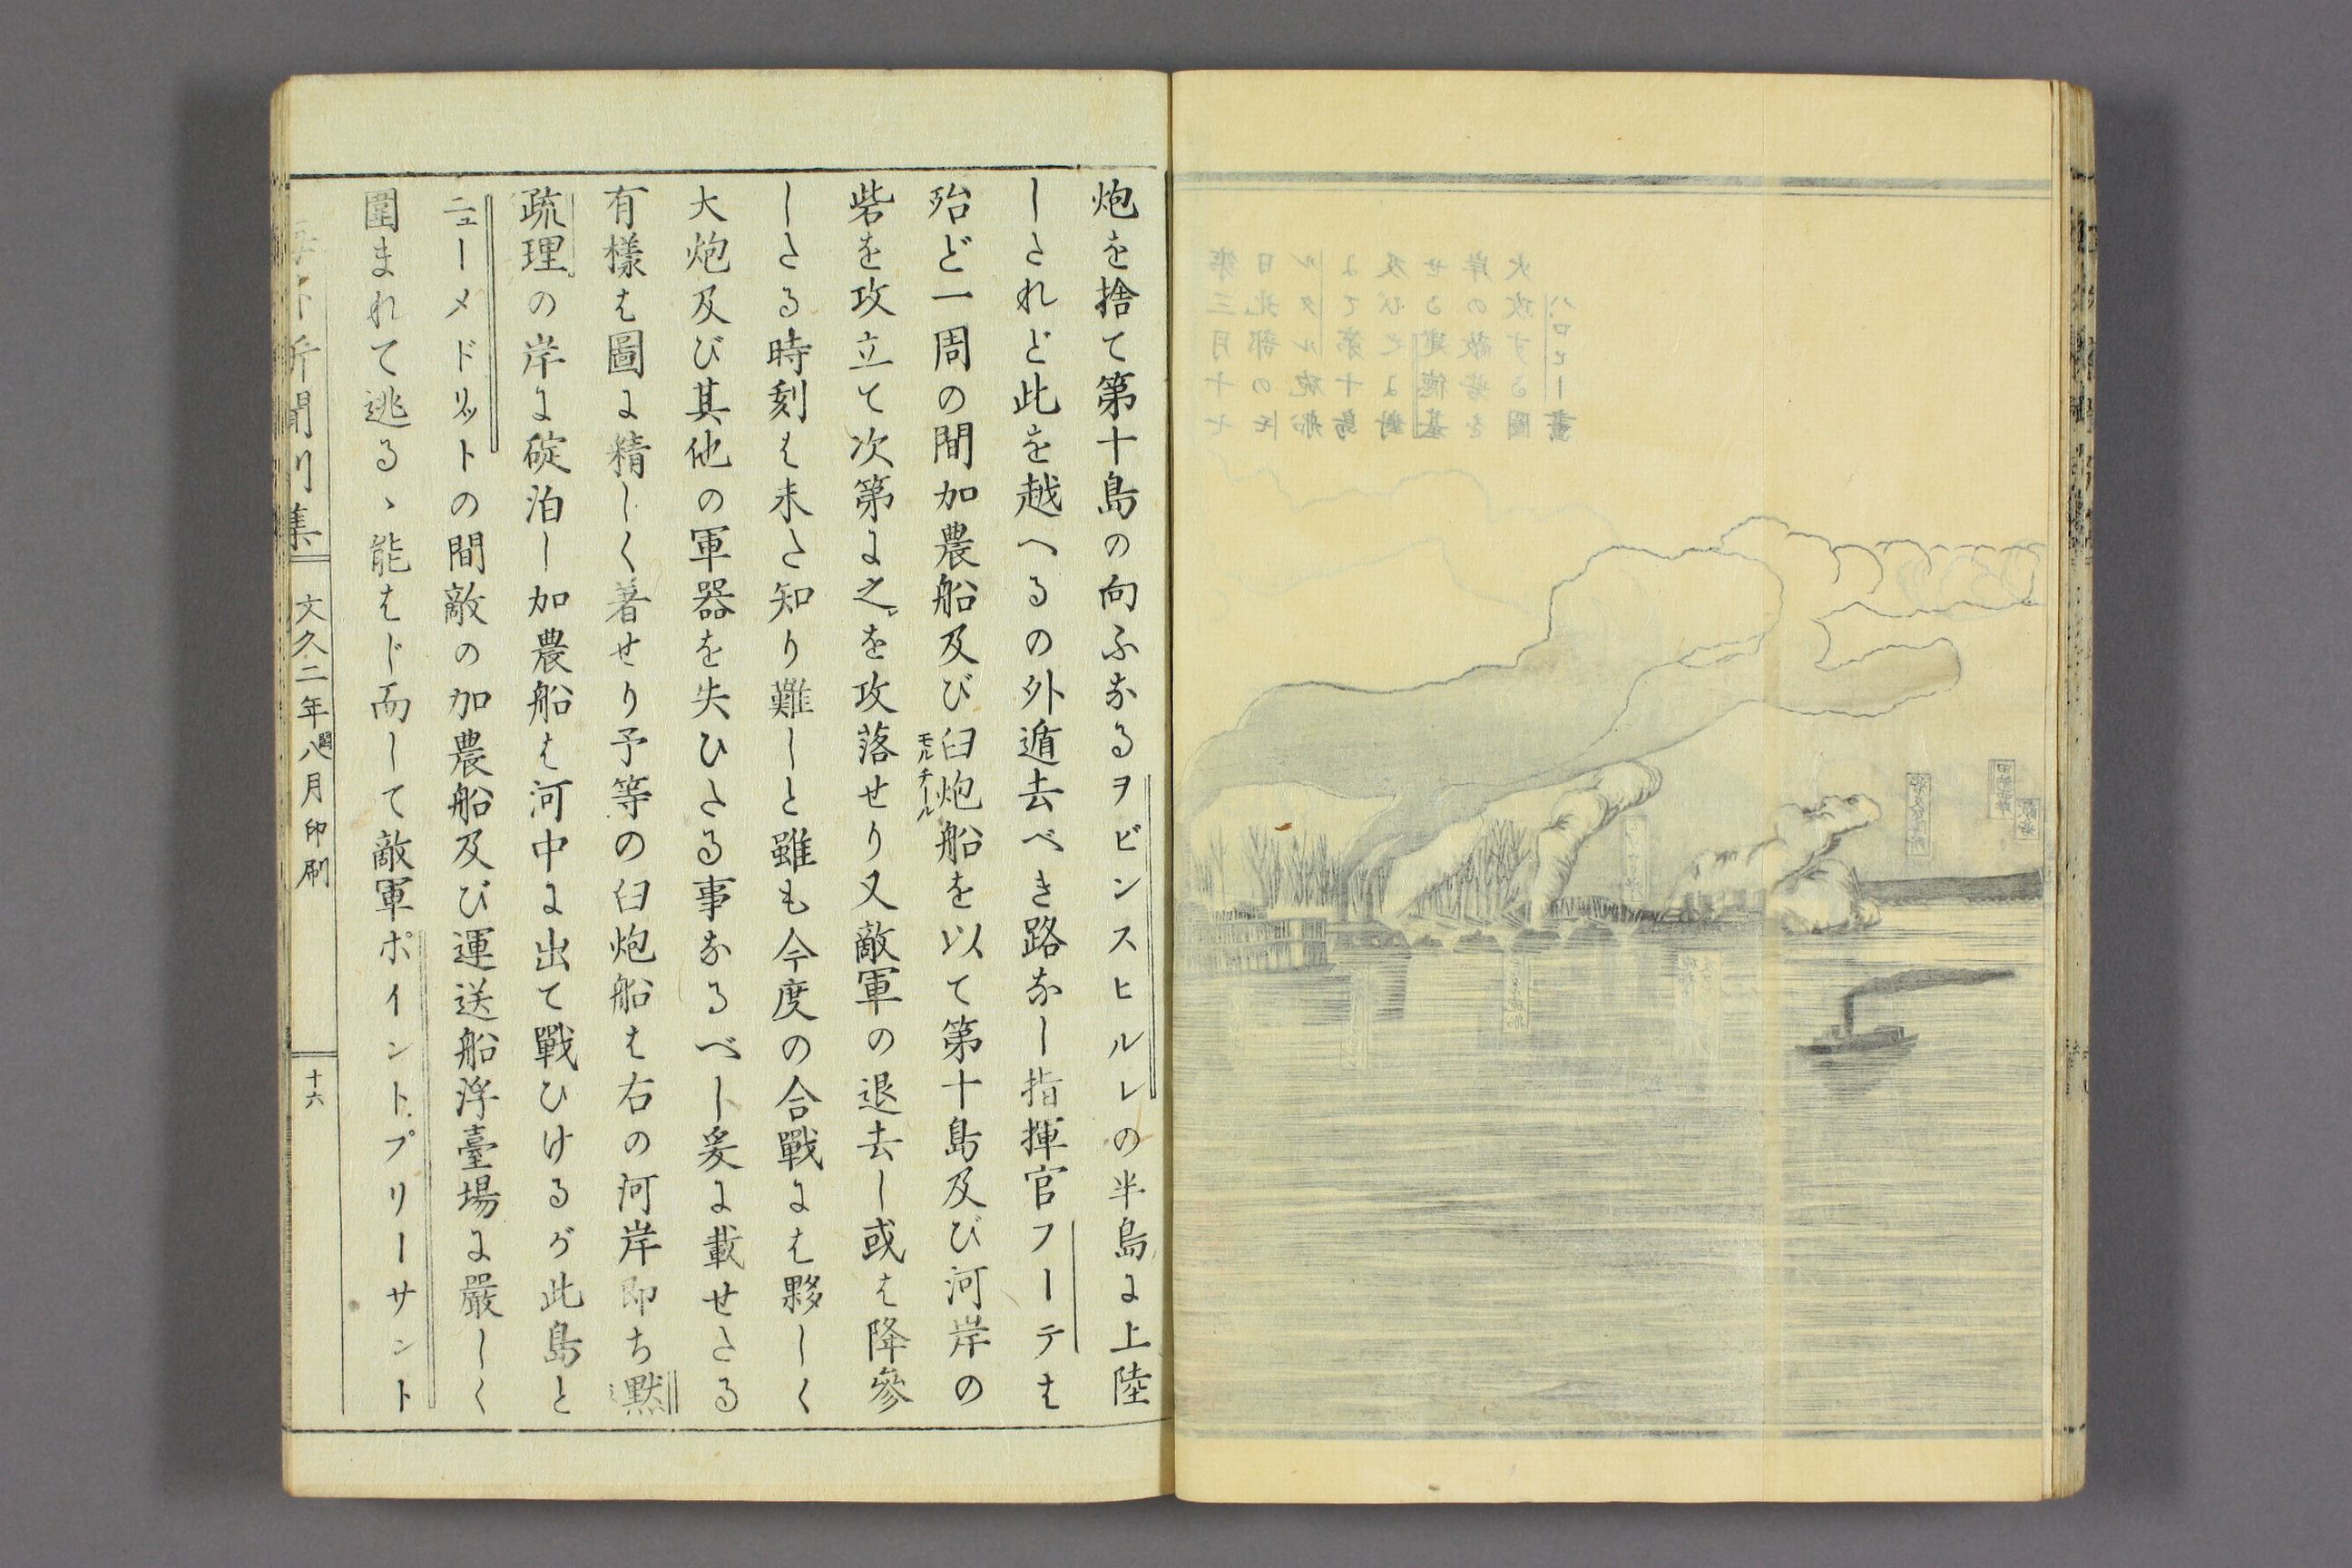 炮を捨て第十島の向ふなるヲビンスヒルレの半島に上陸
しされど此を越へるの外遁去べき路なし指揮官フーテは
殆ど一周の間加農船及び臼炮船を以て第十島及び河岸の
モルチール
砦を攻立て次第に之を攻落せり又敵軍の退去し或は降參
しさる時刻は未さ知り難しと雖も今度の合戰には夥しく
大炮及び其他の軍器を失ひさる事なるべし爰に載せさる
有樣は圖に精しく著せり予等の臼炮船は右の河岸即ち黙
疏理の岸に碇泊し加農船は河中に出て戰ひけるが此島と
ニューメドリットの間敵の加農船及び運送船浮臺場に嚴しく
圍まれて逃るゝ能はじ而して敵軍ポイントプリーサント
文久二年閏八月印刷
十六